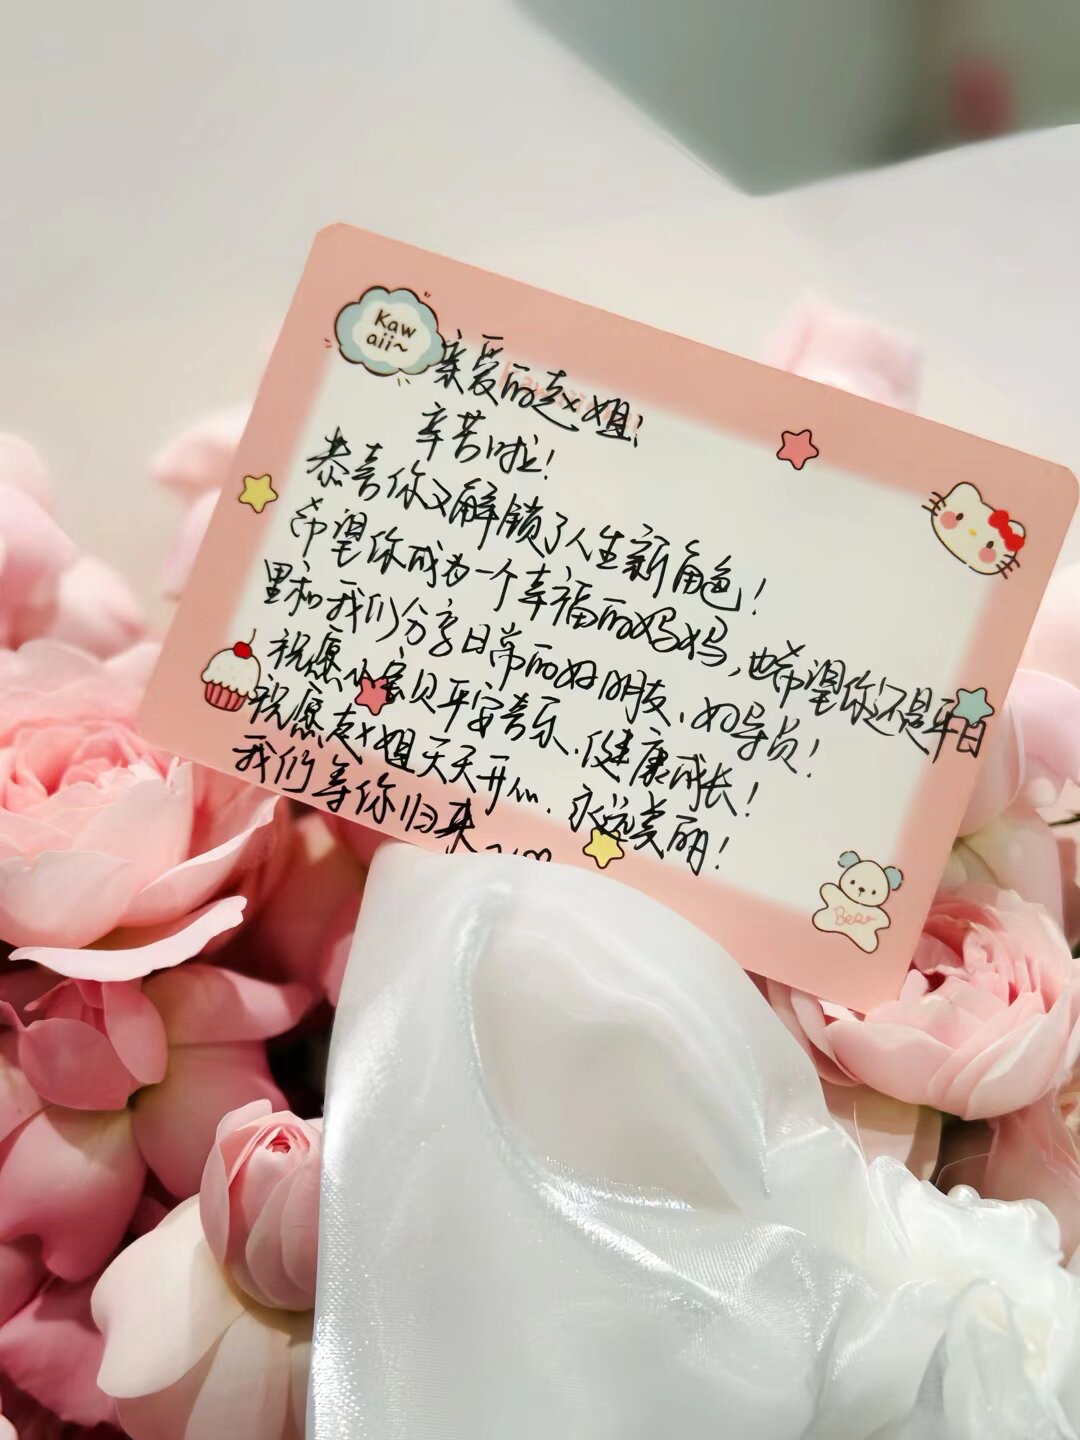 Kaw
aii~
亲爱的赵x姐:
辛苦啦!
恭喜你又解锁了人生新角色!
希望你成为一个幸福的妈妈,也希望你还是平日
里和我们分享日常的好朋友、好导员!
祝愿小宝贝平安喜乐、健康成长!
祝愿赵x姐天天开心、永远美丽!
我们等你归来
Bear